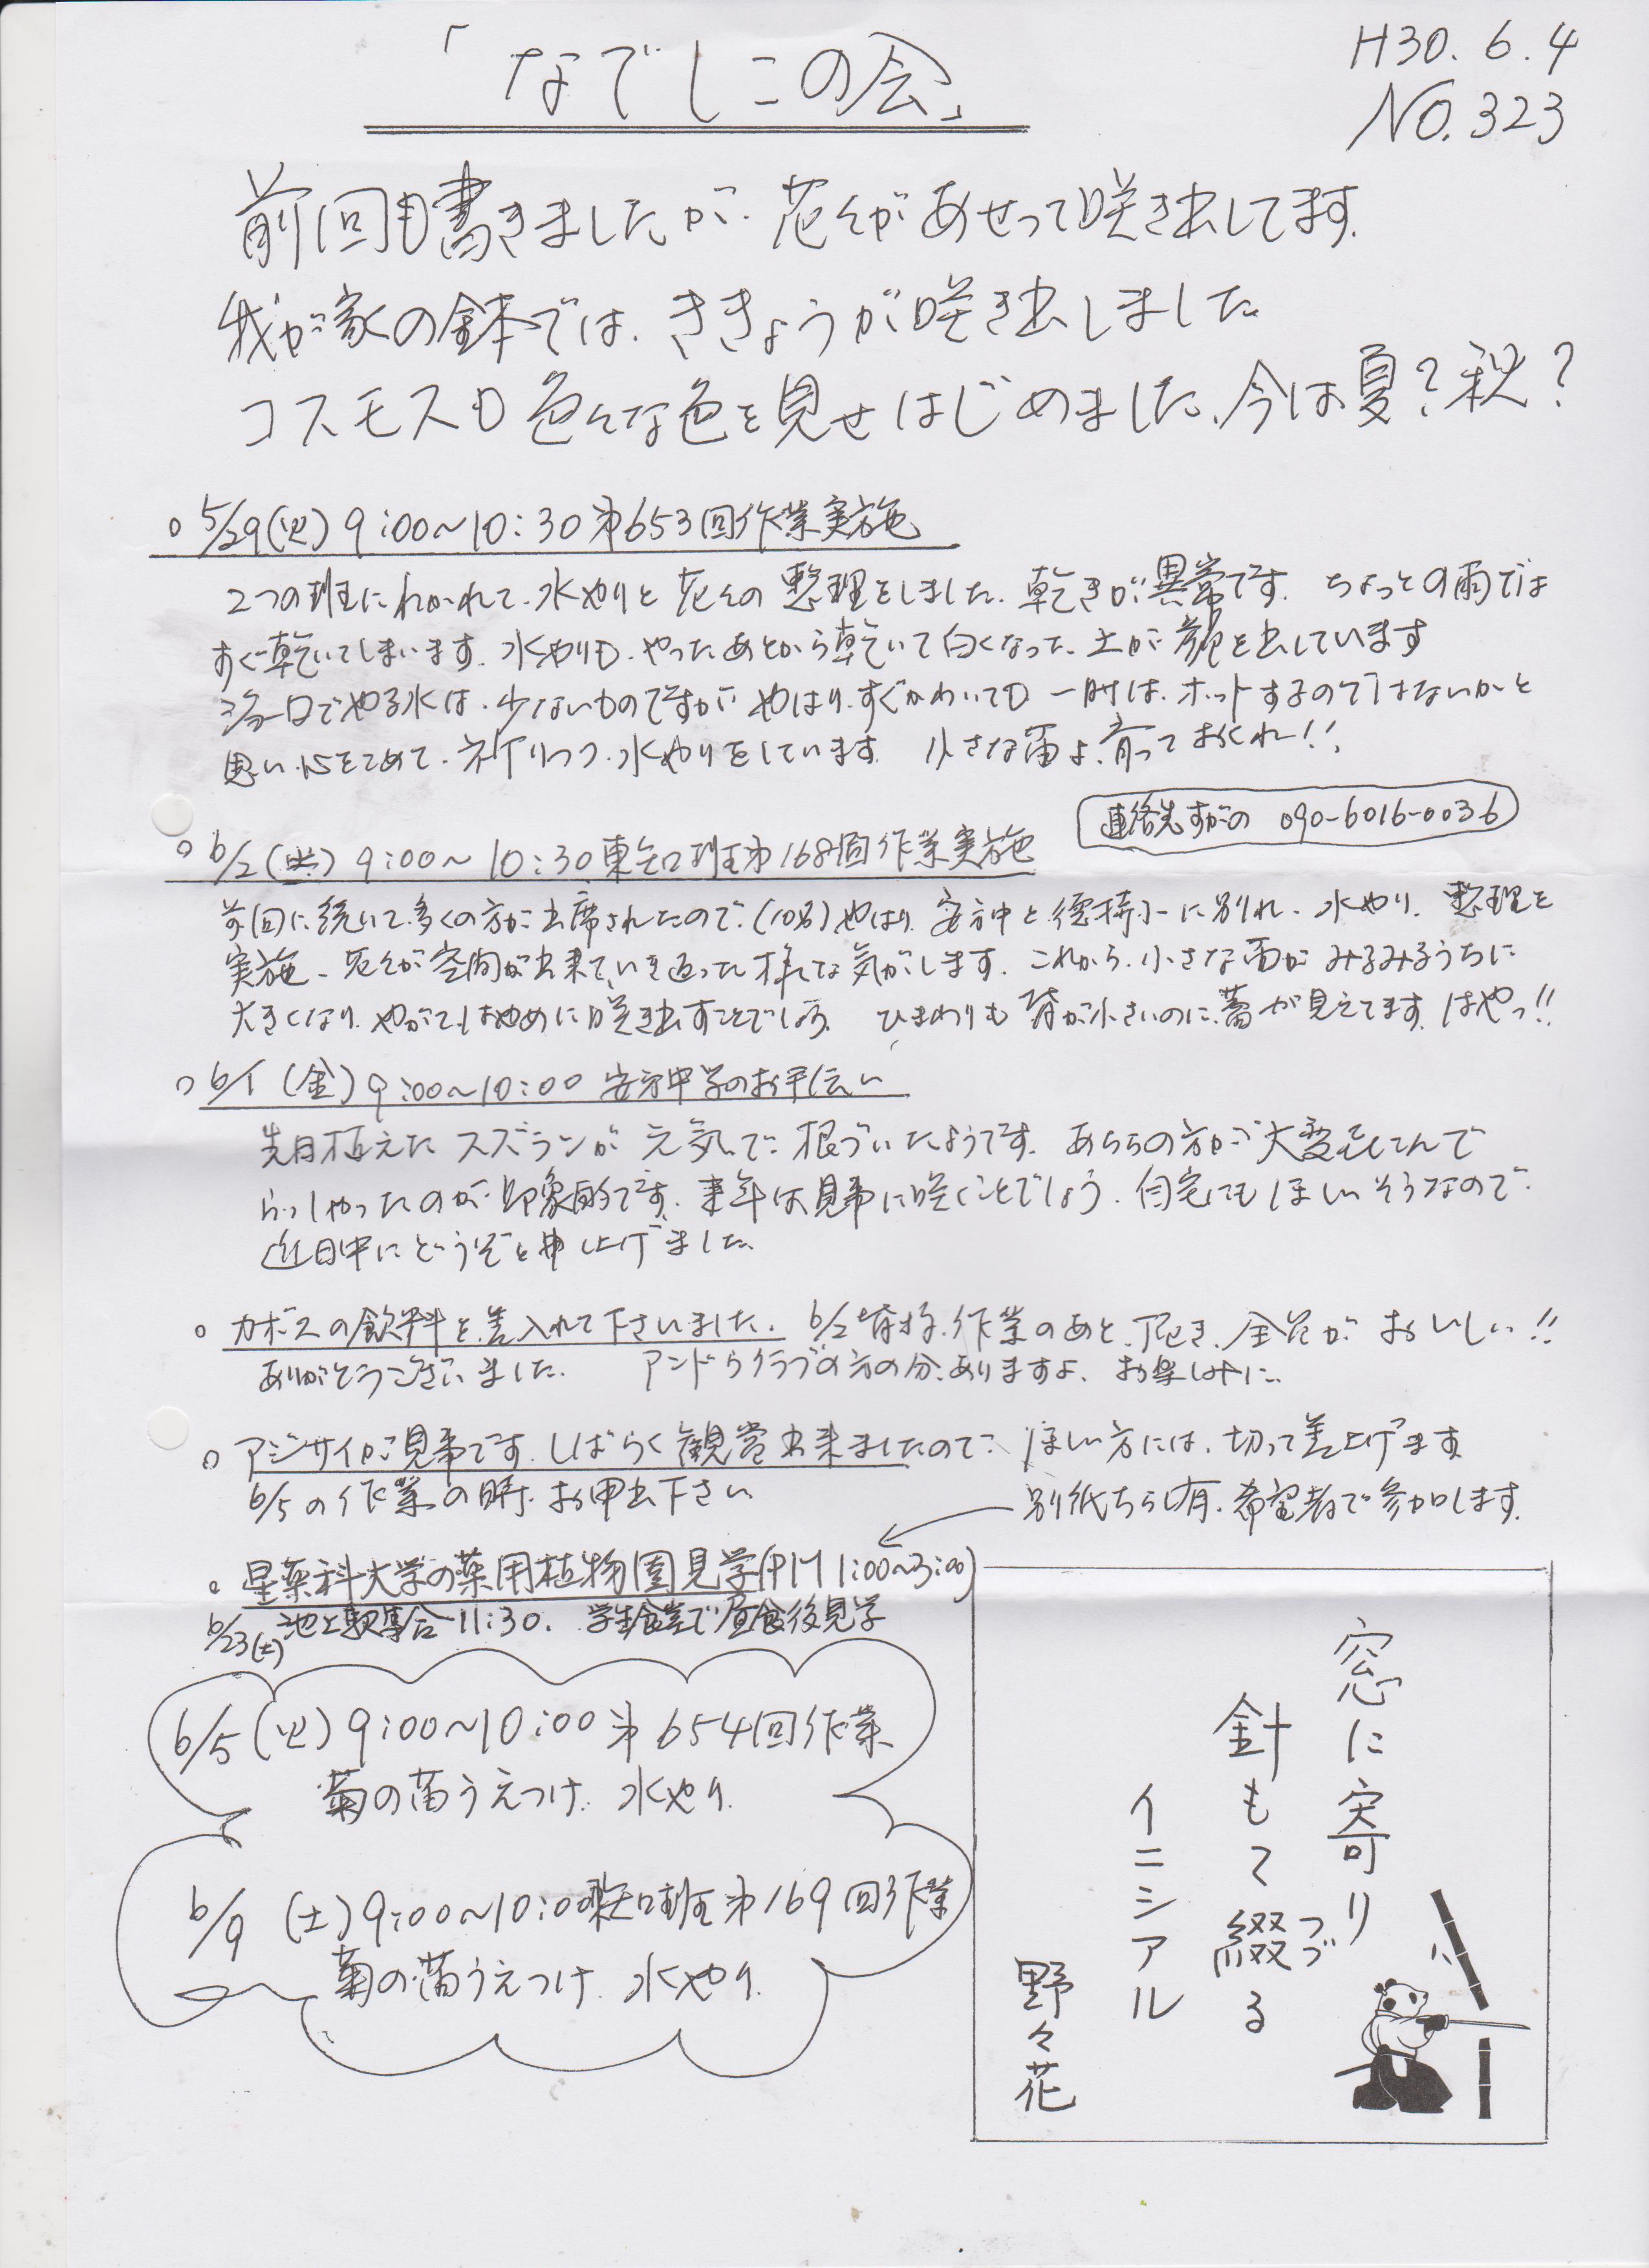 「なでしこの会」
H30.6.4
NO.323
前回も書きましたが、花々があせって咲き出してます。
我が家の鉢では、ききょうが咲き出しました
コスモスも色々な色を見せはじめました、今は夏?秋?
○5/29(火)9:00~10:30第653回作業実施
2つの班にわかれて、水やりと花々の整理をしました、乾きが異常です、ちょっとの雨では
すぐ乾いてしまいます、水やりも、やったあとから乾いて白くなった、土が顔を出しています
ジョーロでやる水は、少ないものですが、やはり、すぐかわいても一時は、ホットするのではないかと
思い、心をこめて、祈りつつ、水やりをしています、小さな苗よ、育っておくれ!!
連絡先すがの 090-6016-0036
○6/2(土)9:00~10:30東矢口班第168回作業実施
前回に続いて、多くの方が出席されたので、(10名)やはり、安方中と徳持小に別れ、水やり、整理を
実施、花々が空間が出来て、いき返った様な気がします、これから、小さな苗がみるみるうちに
大きくなり、やがて、はやめに咲き出すことでしょう、ひまわりも背が小さいのに、蕾が見えてます、はやっ!!
○6/1(金)9:00~10:00安方中学のお手伝い
先日植えたスズランが元気で、根づいたようです、あちらの方が大変喜んで
らっしゃったのが、印象的です、来年は見事に咲くことでしょう、自宅にもほしいそうなので、
近日中にどうぞと申し上げました、
○カボスの飲料を差入れて下さいました、6/2皆様、作業のあと、頂き、全員がおいしい!!
ありがとうございました、アンドウクラブの方の分、ありますよ、お楽しみに、
○アジサイが見事です、しばらく観賞出来ましたので、ほしい方には、切って差上げます
6/5の作業の時、お申出下さい
別紙ちらし有、希望者で参加します、
○星薬科大学の薬用植物園見学(PM1:00~3:00)
6/23(土)池上駅集合11:30、学生食堂で昼食後見学
6/5(火)9:00~10:00第654回作業
菊の苗うえつけ、水やり、
6/9(土)9:00~10:00東矢口班第169回作業
菊の苗うえつけ、水やり、
窓に寄り
針もて綴る
つづ
イニシアル
野々花